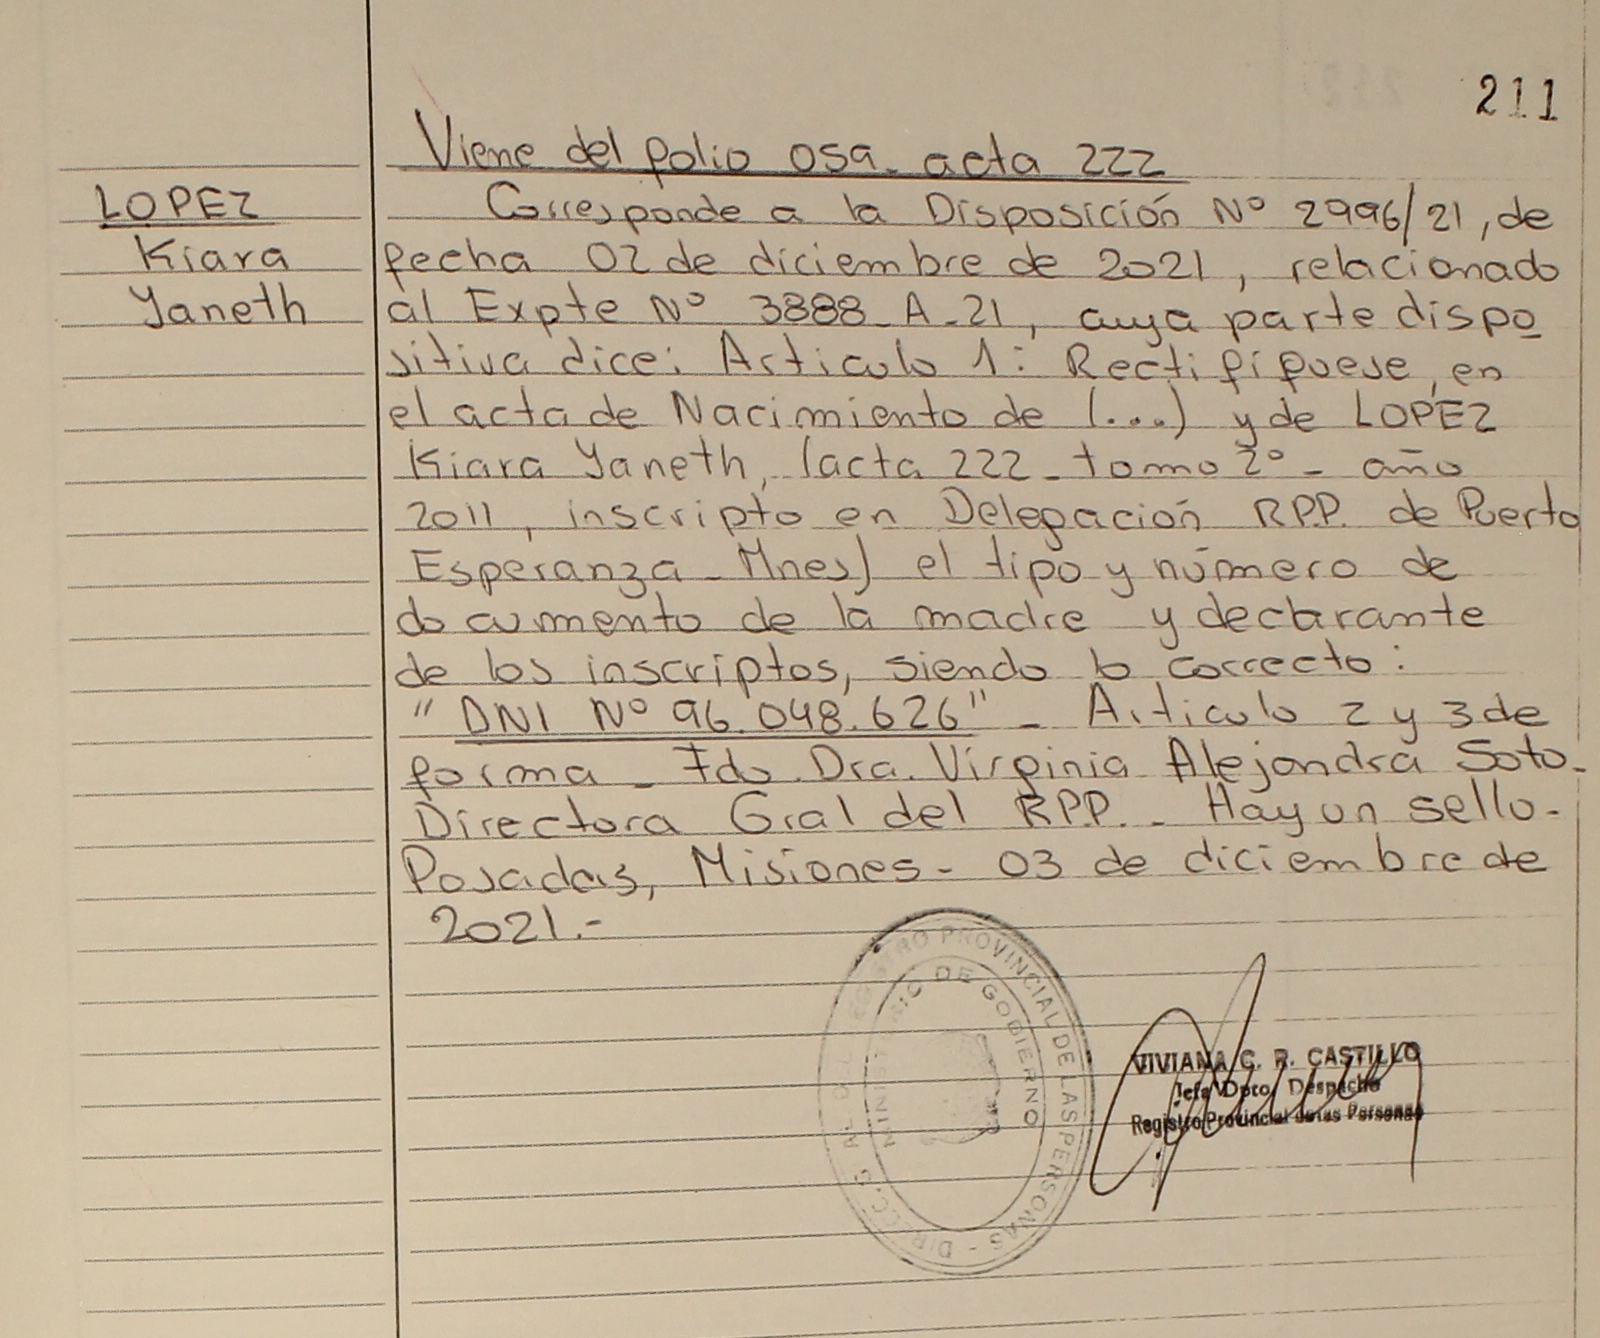 211
Viene del folio 059. acta 222
LOPEZ
Kiara
Yaneth
Corresponde a la Disposición Nº 2996/21, de
fecha 02 de diciembre de 2021, relacionado
al Expte Nº 3888-A-21, cuya parte dispo
sitiva dice: Articulo 1: Rectifífuese, en
el acta de Nacimiento de (...) y de LOPEZ
Kiara Yaneth, (acta 222 - tomo 2º - año
2011, inscripto en Delegación RPP. de Puerto
Esperanza - Mnes) el tipo y número de
documento de la madre y declarante
de los inscriptos, siendo lo correcto:
"DNI Nº 96.048.626" - Articulo 2 y 3 de
forma - Fdo. Dra. Virginia Alejandra Soto -
Directora Gral del RPP. - Hay un sello -
Posadas, Misiones - 03 de diciembre de
2021.-
DIRECC. G AL DEL EGISTRO PROVINCIAL DE LAS PERSONAS -
MINISTERIO DE GOBIERNO
VIVIANA C. R. CASTILLO
Jefa Dpto. Despacho
Registro Provincial de las Personas